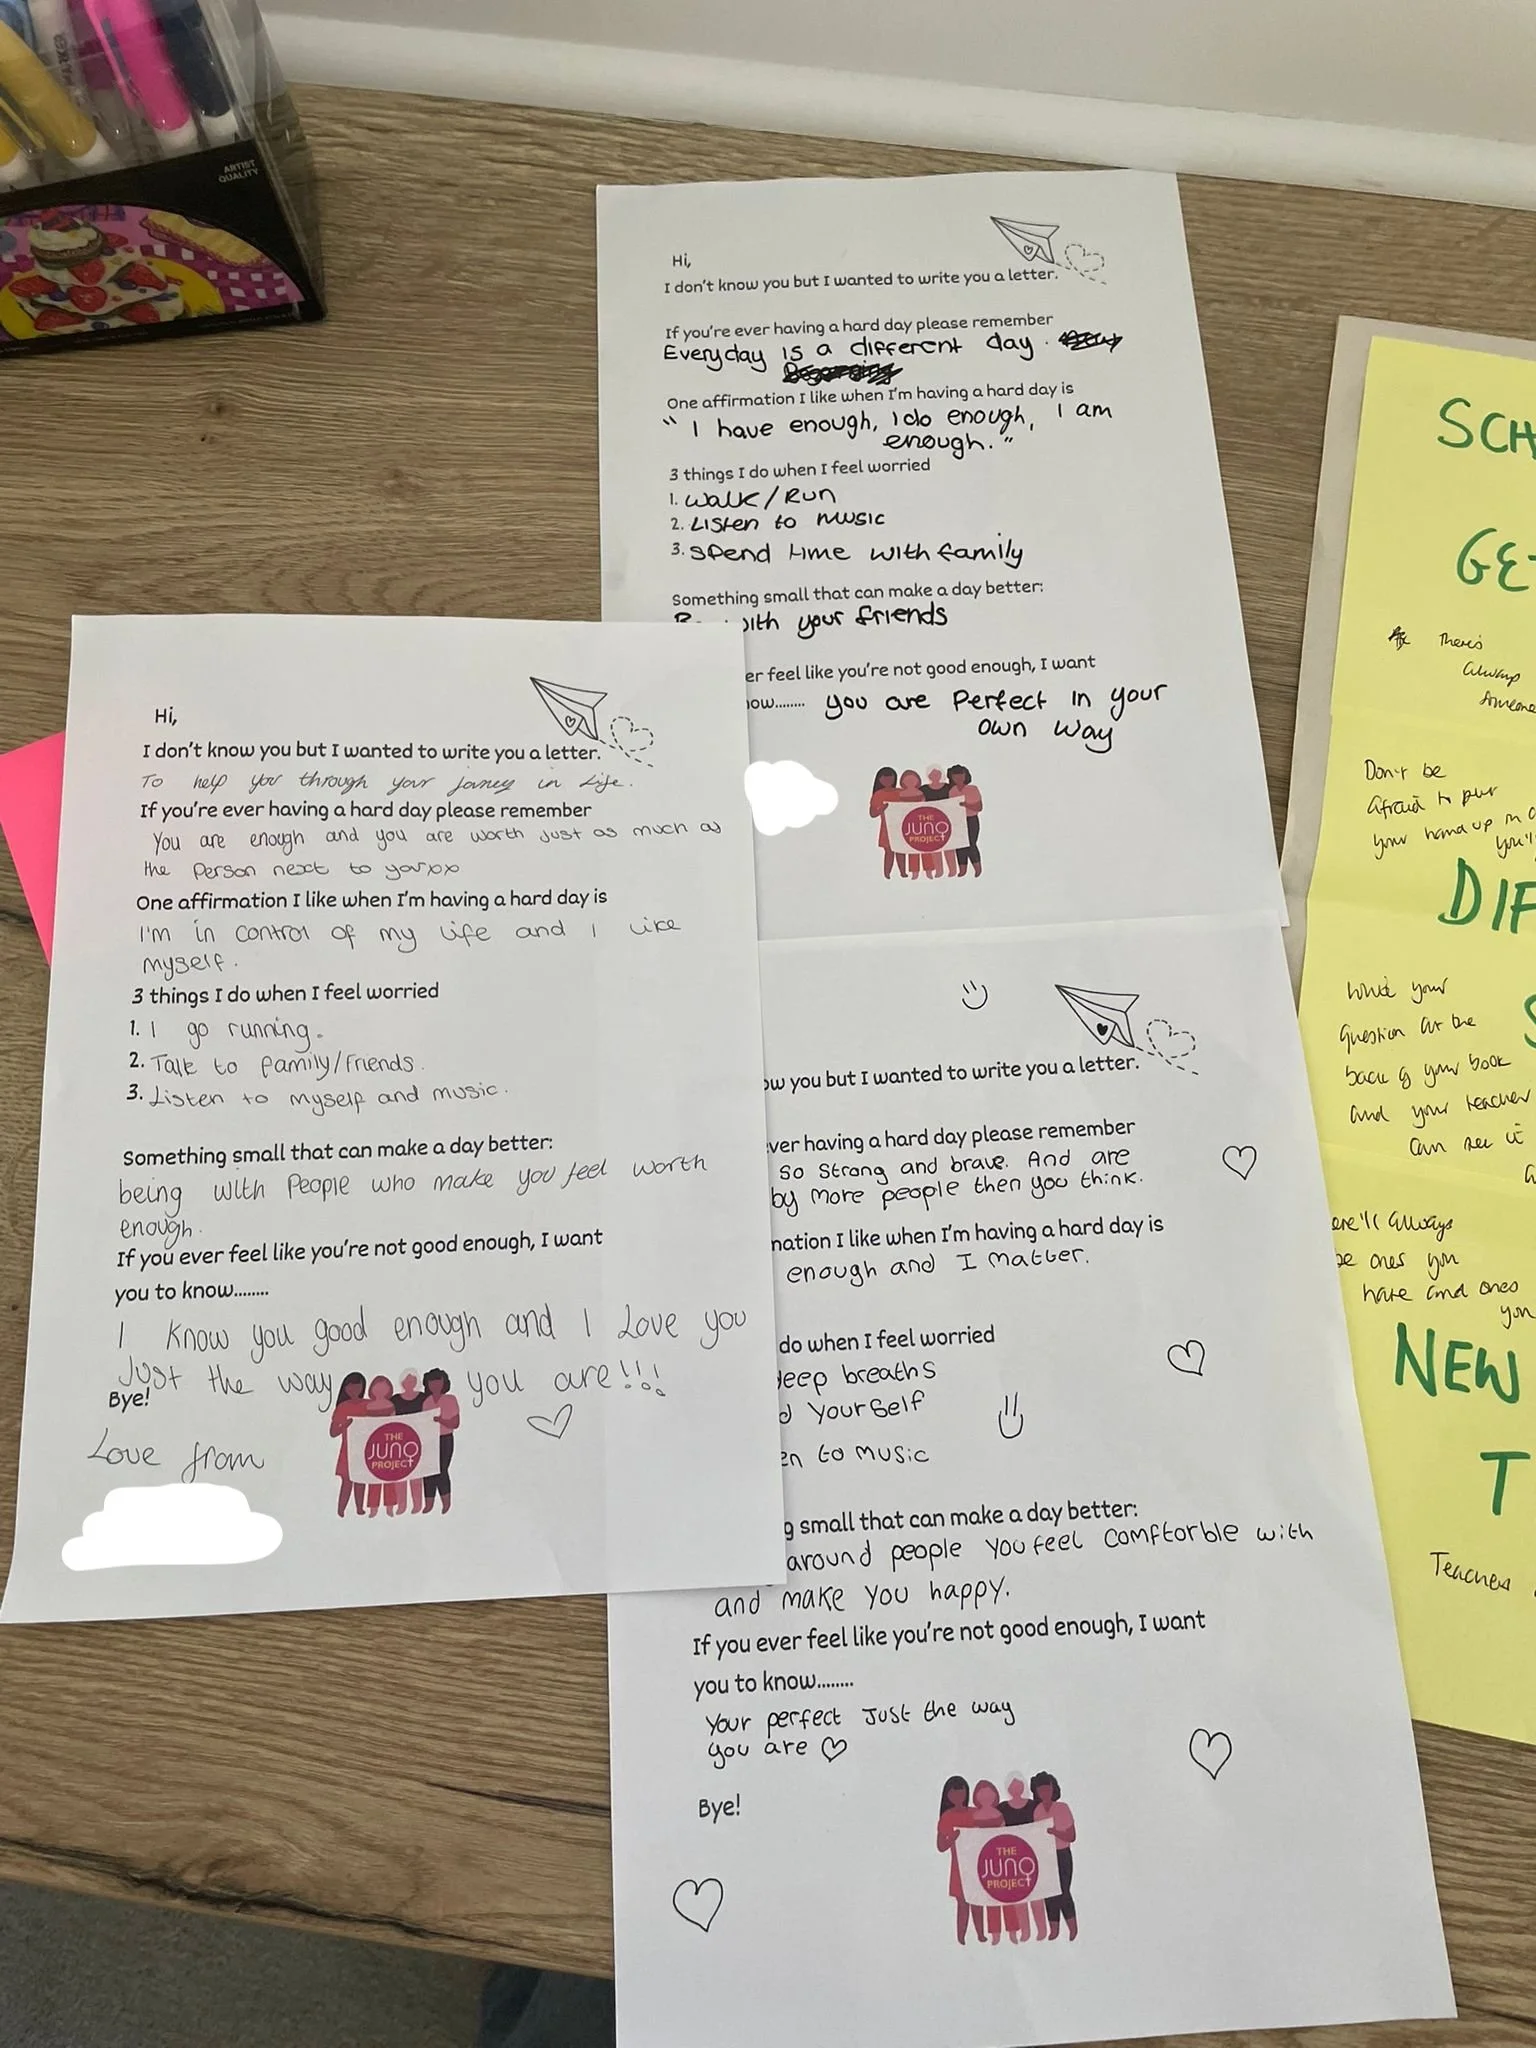 ARTIST
QUALITY
Hi,
I don't know you but I wanted to write you a letter.
If you're ever having a hard day please remember
Everyday is a different day.
One affirmation I like when I'm having a hard day is
"I have enough, I do enough, I am
enough."
3 things I do when I feel worried
1. Walk/Run
2. Listen to music
3. Spend time with family
Something small that can make a day better:
with your friends
er feel like you're not good enough, I want
ow........ you are Perfect in your
own way
THE
JUNO
PROJECT
Hi,
I don't know you but I wanted to write you a letter.
To help you through your jorney in Life.
If you're ever having a hard day please remember
You are enough and you are worth just as much as
the person next to you xx
One affirmation I like when I'm having a hard day is
I'm in control of my life and I like
myself.
3 things I do when I feel worried
1. I go running.
2. Talk to family/friends.
3. Listen to myself and music.
Something small that can make a day better:
being with People who make you feel worth
enough.
If you ever feel like you're not good enough, I want
you to know........
I know you good enough and I Love you
Just the way you are!!!
Bye!
Love from
THE
JUNO
PROJECT
ow you but I wanted to write you a letter.
ver having a hard day please remember
so strong and brave. And are
by more people then you think.
mation I like when I'm having a hard day is
enough and I matter.
do when I feel worried
deep breaths
d yourself
en to music
g small that can make a day better:
around people you feel comftorble with
and make you happy.
If you ever feel like you're not good enough, I want
you to know........
Your perfect just the way
you are
Bye!
THE
JUNO
PROJECT
SCH
GE
There's
always
someone
Don't be
afraid to put
your hand up in
you'll
DIF
write your
question at the
back of your book
and your teacher
can see it
ere'll always
be ones you
hate and ones
you
NEW
T
Teachers